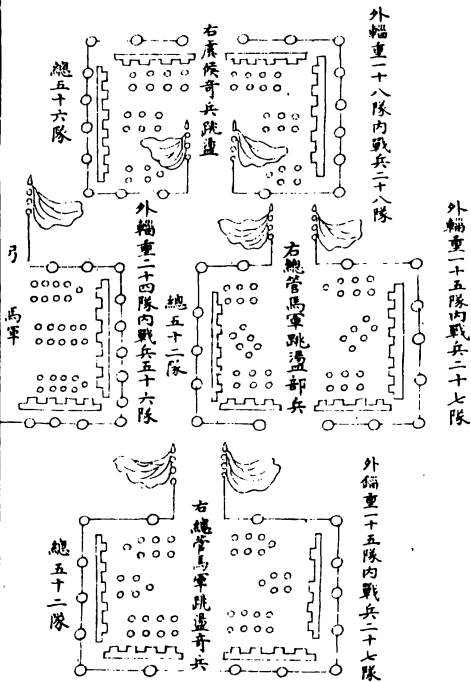 外輜重一十八隊內戰兵二十八隊
右虞候奇兵跳盪
總五十六隊
外輜重一十五隊內戰兵二十七隊
右總管馬軍跳盪部兵
總五十二隊
外輜重二十四隊內戰兵五十六隊
弓
馬軍
外輜重一十五隊內戰兵二十七隊
右總管馬軍跳盪奇兵
總五十二隊